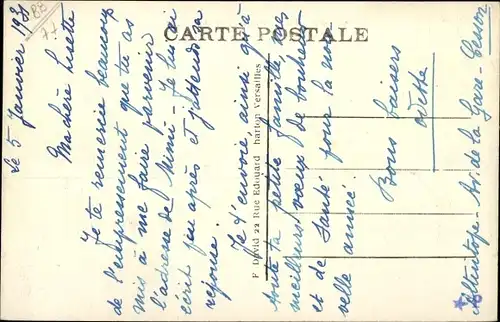 BB
77
CARTE POSTALE
Le 5 Janvier 193
Ma chère Lisette
Je te remercie beaucoup
de l'empressement que tu as
mis à me faire parvenir
l'adresse de Mimi - Je lui ai
écrit peu après et j'attends sa
réponse.
Je t'envoie, ainsi qu'à
toute ta petite famille, mes
meilleurs vœux de bonheur
et de Santé pour la nou
velle année
Bons baisers
Odette
Av. de la Gare - Cesson
F David 22 Rue Edouard harton Versailles